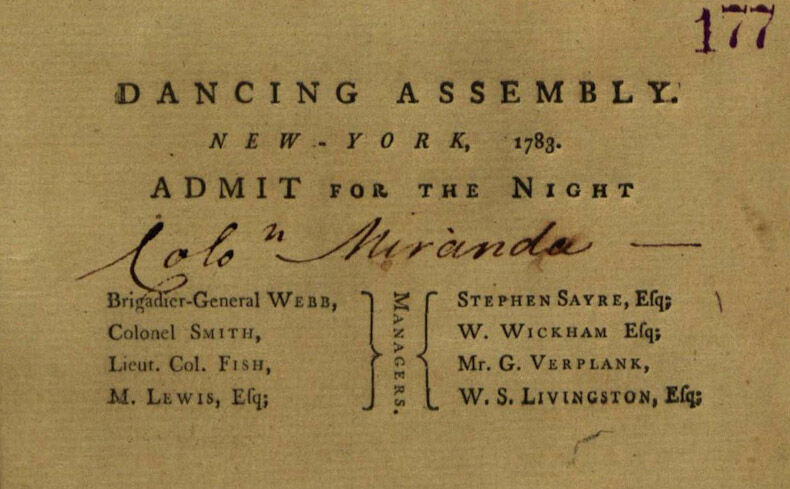 177
DANCING ASSEMBLY.
NEW-YORK, 1783.
ADMIT FOR THE NIGHT
Colo n Miranda —
Brigadier-General WEBB,
Colonel SMITH,
Lieut. Col. FISH,
M. LEWIS, Eſq;
MANAGERS.
STEPHEN SAYRE, Eſq;
W. WICKHAM Eſq;
Mr. G. VERPLANK,
W. S. LIVINGSTON, Eſq;